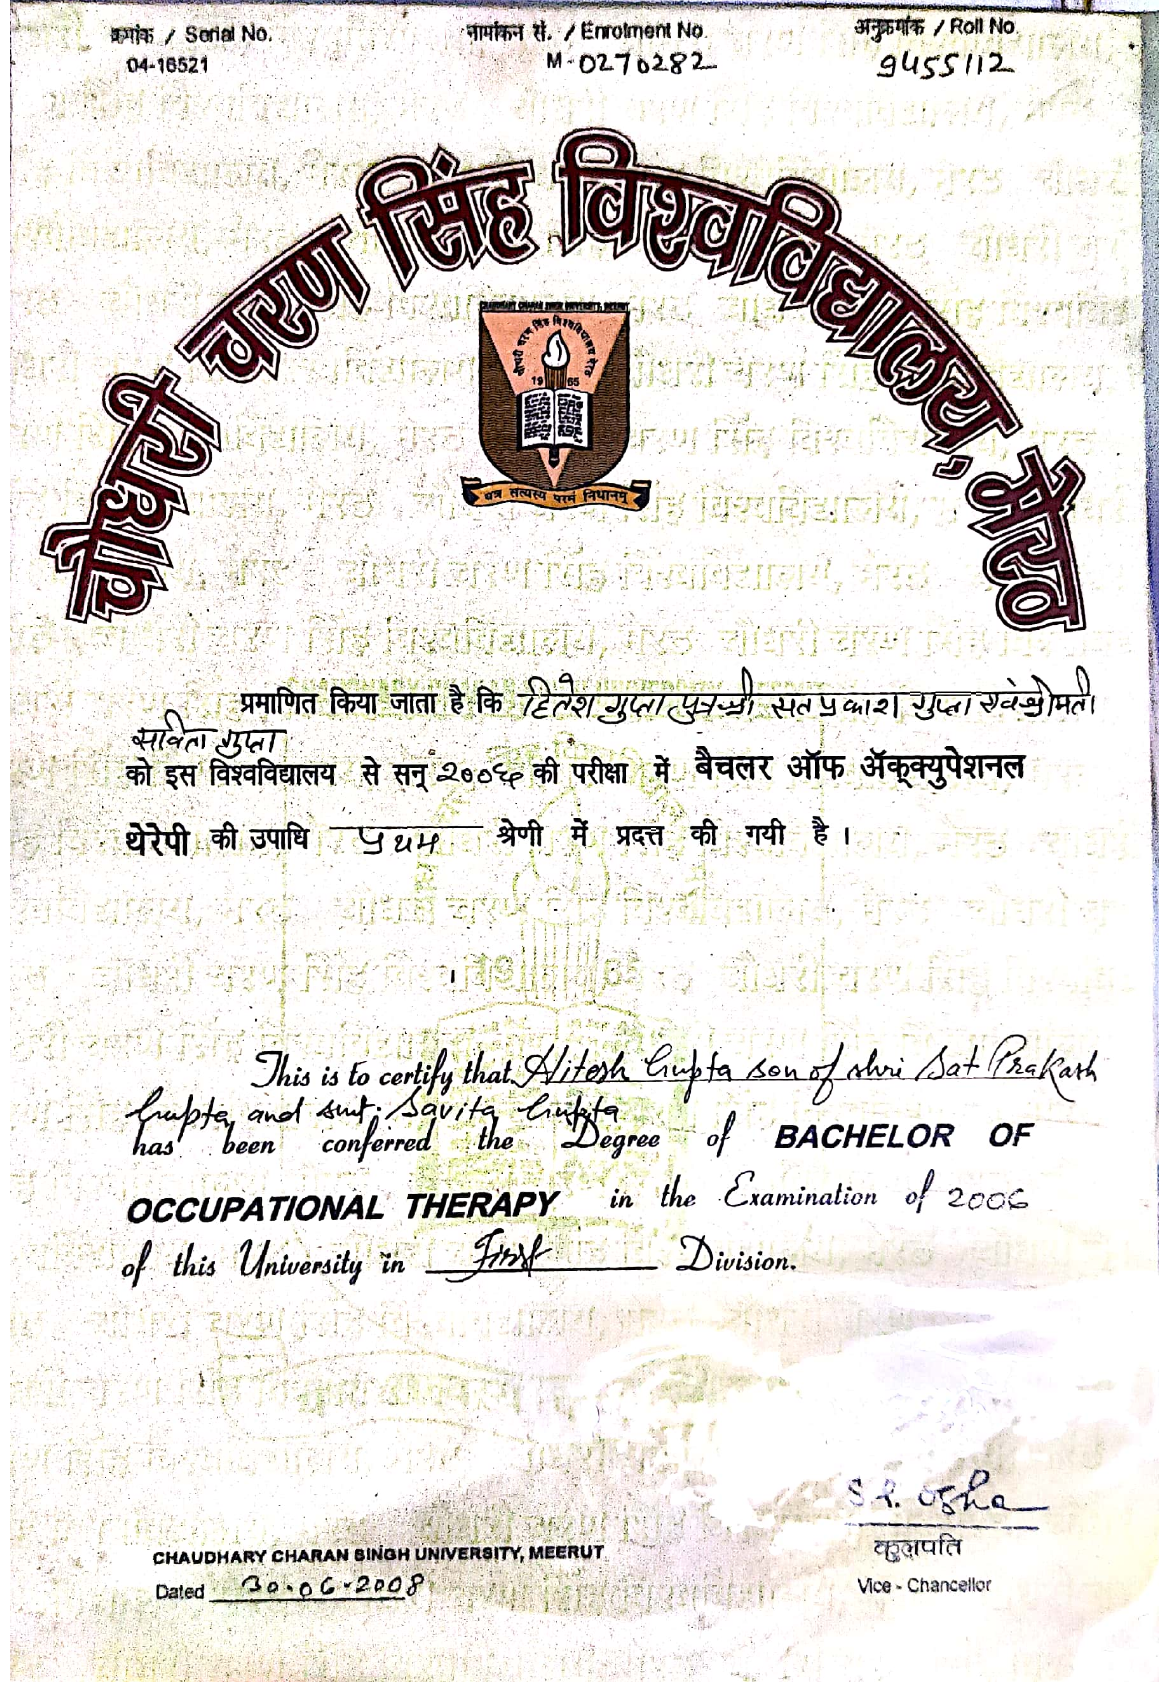 क्रमांक / Serial No.
नामांकन सं. / Enrolment No.
अनुक्रमांक / Roll No.
04-16521
M-0270282
9455112
चौधरी चरण सिंह विश्वविद्यालय, मेरठ
CHAUDHARY CHARAN SINGH UNIVERSITY, MEERUT
चौधरी चरण सिंह विश्वविद्यालय मेरठ
19 65
यत्र सत्यस्य परमं निधानम्
प्रमाणित किया जाता है कि हितेश गुप्ता पुत्र श्री सत प्रकाश गुप्ता एवं श्रीमती
सविता गुप्ता
को इस विश्वविद्यालय से सन् २००६ की परीक्षा में बैचलर ऑफ ॲक्क्युपेशनल
थेरेपी की उपाधि प्रथम श्रेणी में प्रदत्त की गयी है ।
This is to certify that Hitesh Gupta son of shri Sat Prakash
Gupta and smt. Savita Gupta
has been conferred the Degree of BACHELOR OF
OCCUPATIONAL THERAPY in the Examination of 2006
of this University in First Division.
S. P. Ojha
कुलपति
CHAUDHARY CHARAN SINGH UNIVERSITY, MEERUT
Dated 30-06-2008
Vice - Chancellor